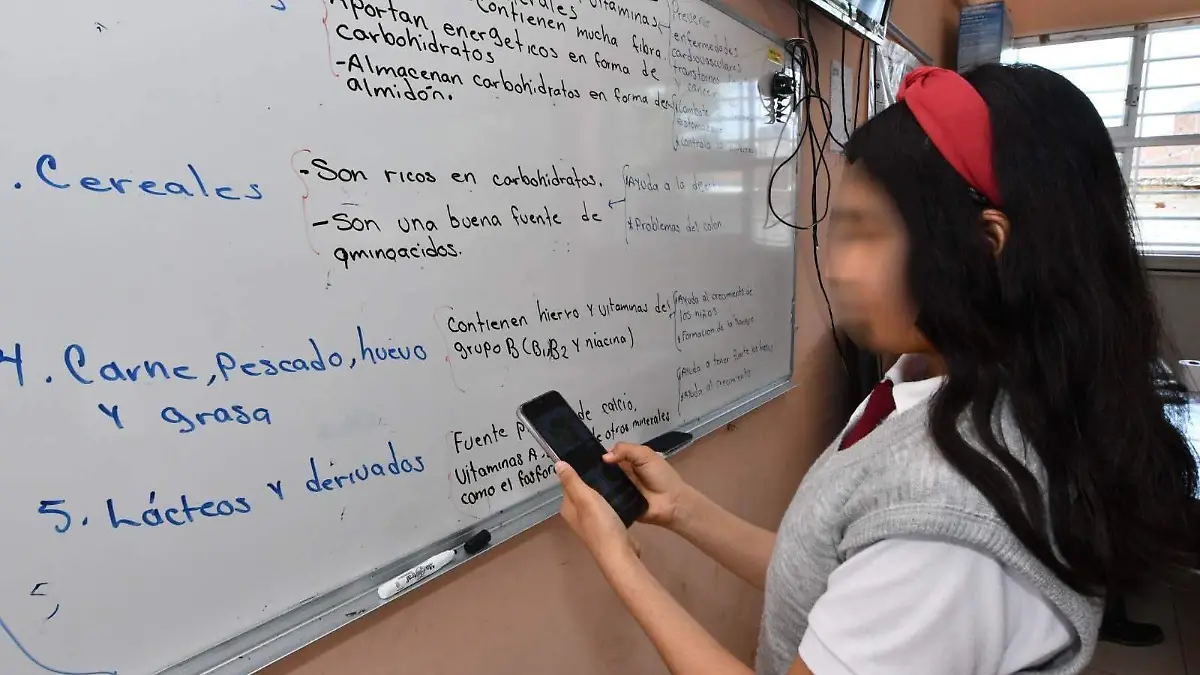 vitaminas
Contienen mucha fibra.
Aportan energeticos en forma de
carbohidratos
-Almacenan carbohidratos en forma de
almidón.
Presenir
enfermedades
cardiovasculares
transtornos
y cancer
*Combate
.Cereales
-Son ricos en carbohidratos.
-Son una buena fuente de
aminoacidos.
*Ayuda a la
*Problemas del colon
4. Carne, Pescado, huevo
y grasa
Contienen hierro y vitaminas del
grupo B (B1,B2 y niacina)
*Ayuda al crecimiento de
los niños
*Formación de la sangre
*Ayuda a tener
*Ayuda al crecimiento
5. Lácteos y derivados
Fuente
de calcio,
Vitaminas A
otros minerales
como el